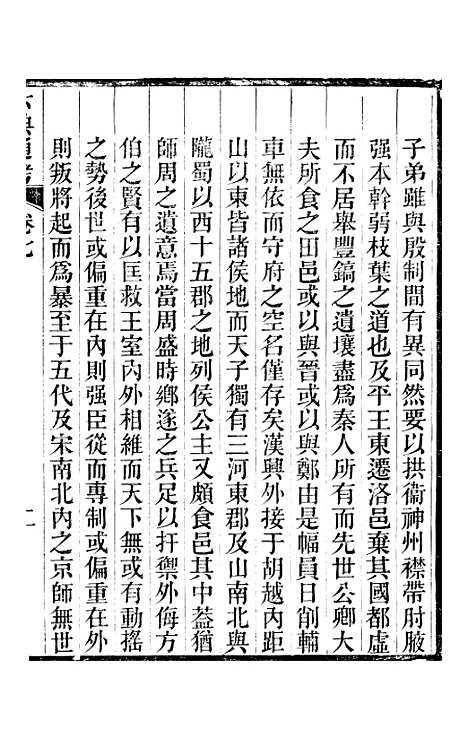 子弟雖與殷制閒有異同然要以拱衞神州襟帶肘腋
强本幹弱枝葉之道也及平王東遷洛邑棄其國都虛
而不居舉豐鎬之遺壤盡爲秦人所有而先世公卿大
夫所食之田邑或以與晉或以與鄭由是幅員日削輔
車無依而守府之空名僅存矣漢興外接于胡越內距
山以東皆諸侯地而天子獨有三河東郡及山南北與
隴蜀以西十五郡之地列侯公主又頗食邑其中葢猶
師周之遺意焉當周盛時鄉遂之兵足以扞禦外侮方
伯之賢有以匡救王室內外相維而天下無或有動搖
之勢後世或偏重在內則强臣從而專制或偏重在外
則叛將起而爲暴至于五代及宋南北內之京師無世
六典通考
卷七
二